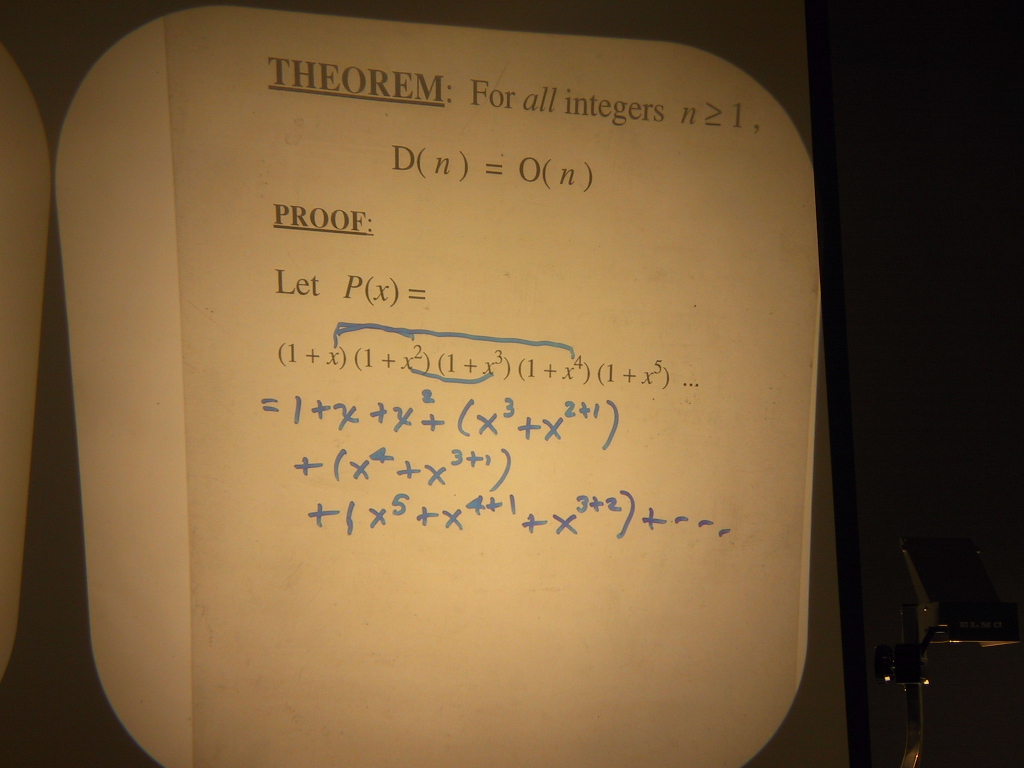 THEOREM: For all integers n ≥ 1 ,
D( n ) = O( n )
PROOF:
Let P(x) =
(1 + x) (1 + x²) (1 + x³) (1 + x⁴) (1 + x⁵) ...
= 1 + x + x² + (x³ + x²⁺¹)
+ (x⁴ + x³⁺¹)
+ (x⁵ + x⁴⁺¹ + x³⁺²) + ----
ELMO